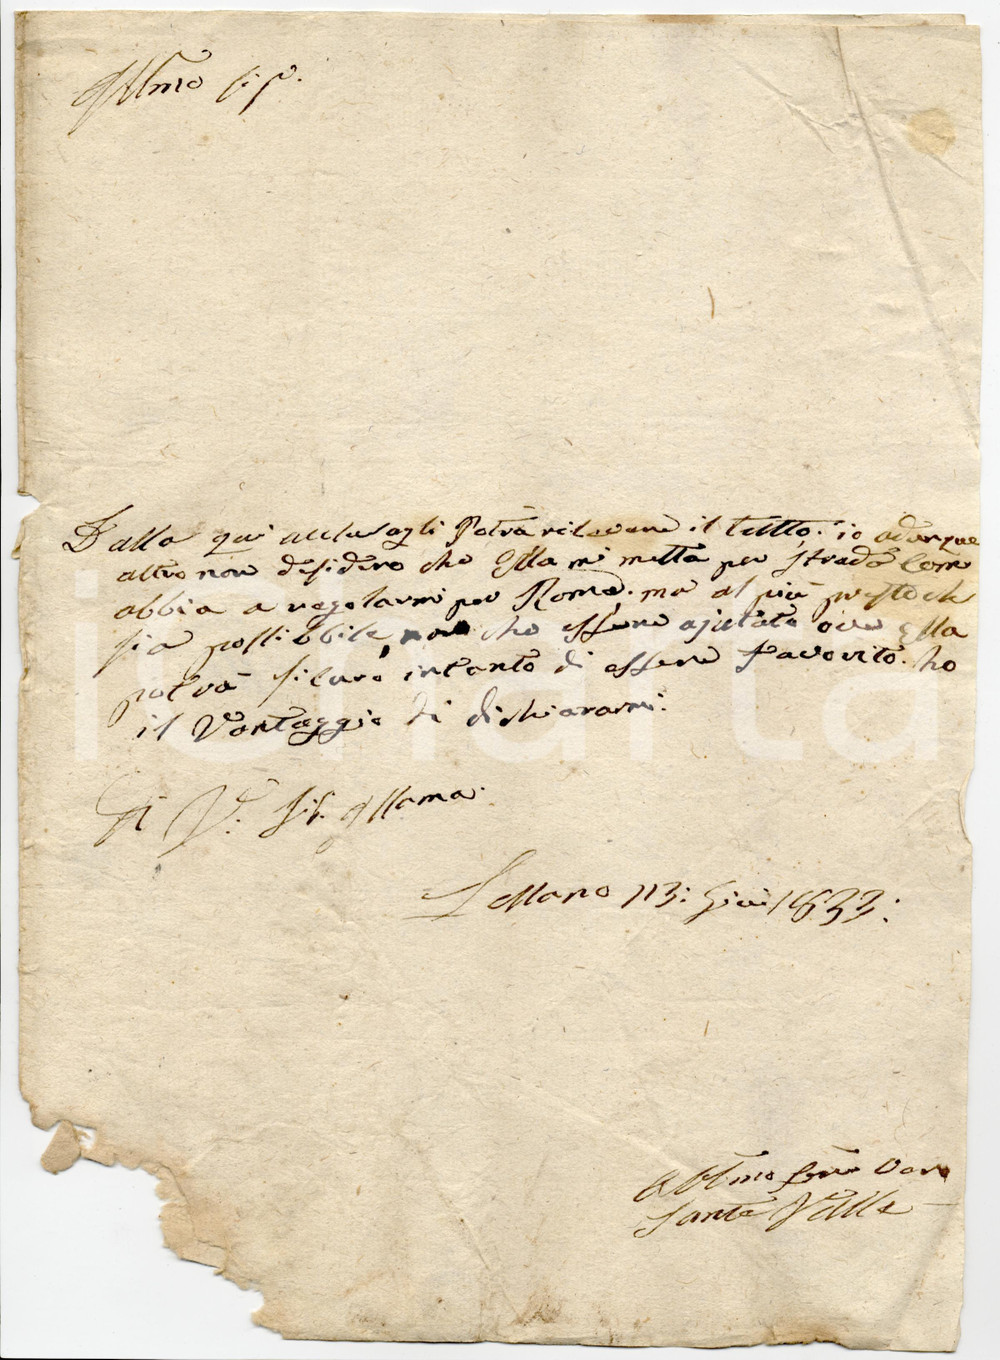 Illmo Sig.
Dalla qui acclusagli Potrà rilevare il tutto. io adunque
altro non desidero che Ella mi metta per strada Com
abbia a regolarmi per Roma. ma al più presto ch
sia possibbile, che essere ajutato ove Ella
potrà sicuro intanto di essere favorito. ho
il Vantaggio di dichiararmi.
Di V. S. Illama.
Lettano 13: Giu: 1833:
Obbmo Servo Vero
Sante Valle